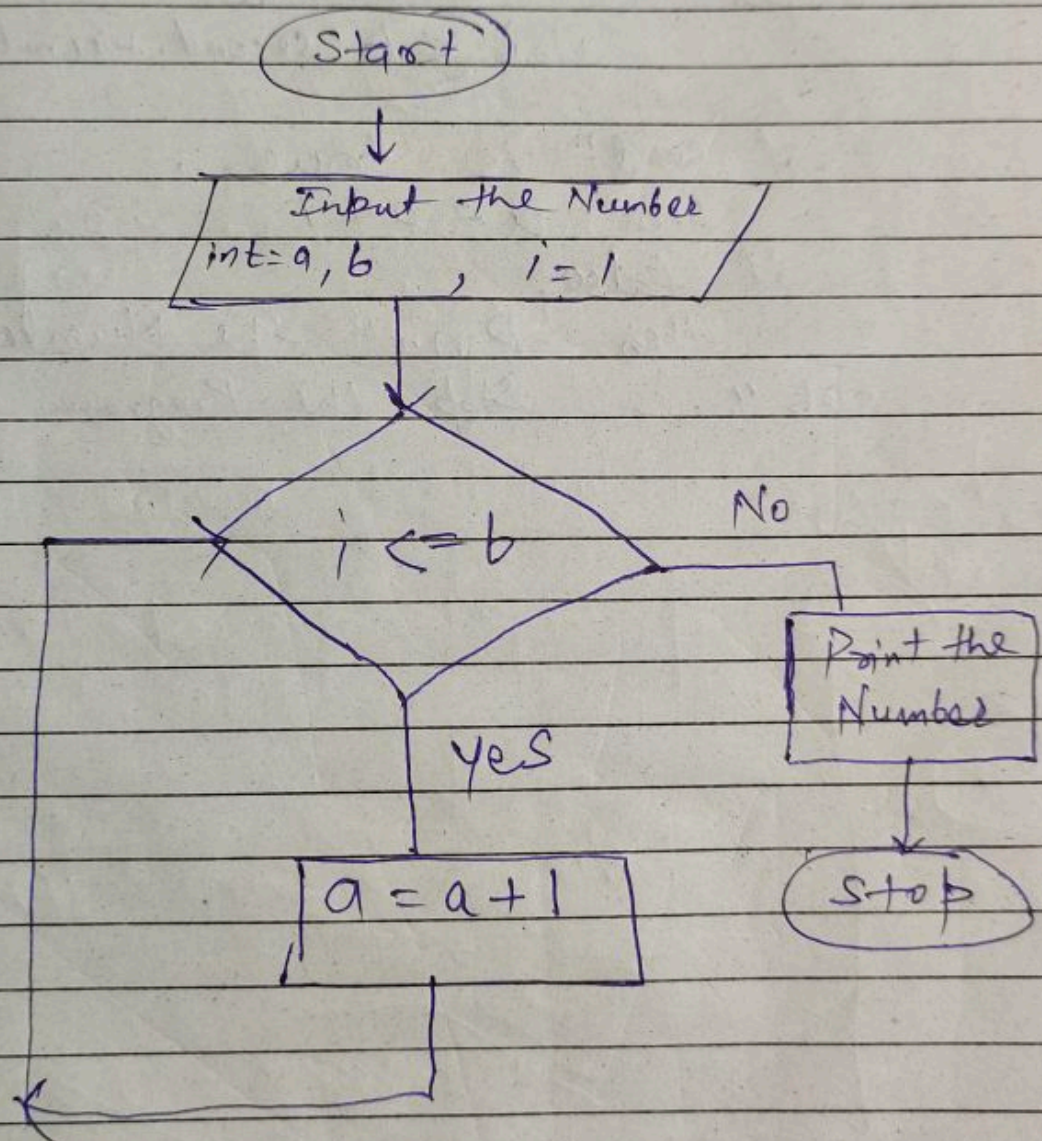 Start
Input the Number
int=a, b , i=1
i <= b
No
Print the
Number
yes
a = a + 1
Stop